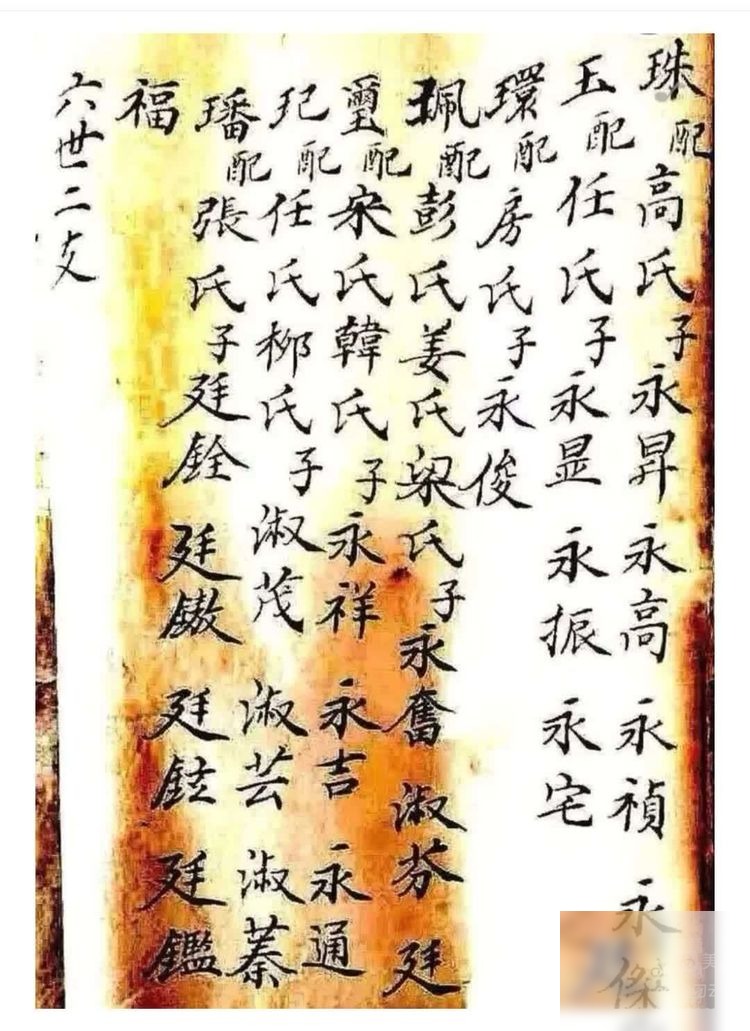 珠配高氏子永昇 永高 永禎 永傑
玉配任氏子永显 永振 永宅
環配房氏子永俊
珮配彭氏姜氏梁氏子永奮 淑芬 廷
璽配宋氏韓氏子永祥 永吉 永通
玘配任氏柳氏子淑茂 淑芸 淑蓁
璠配張氏子廷銓 廷鏾 廷鉉 廷鑑
福
六世二支